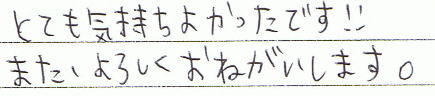 とても気持ちよかったです!!
また、よろしくおねがいします。